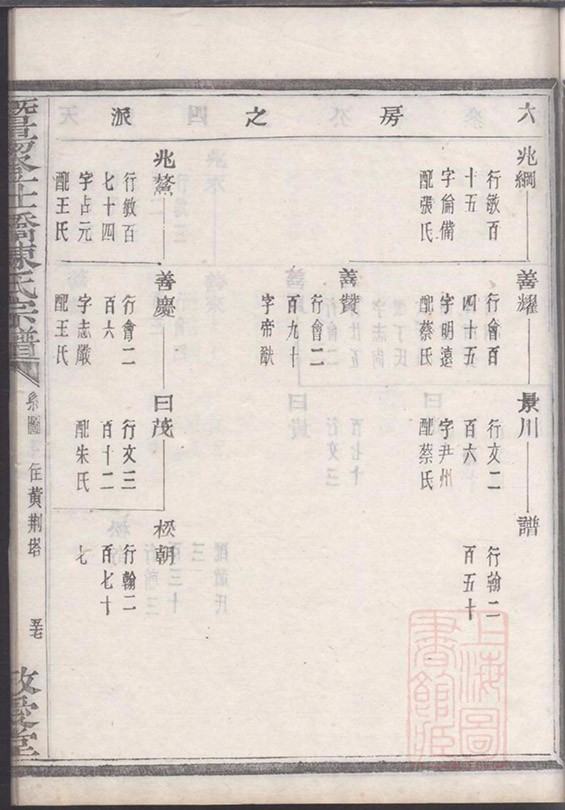 六房之派
兆綱
行敏百
十五
字倫備
配張氏
兆鰲
行敏百
七十四
字占元
配王氏
善耀
行會百
四十五
字明遠
配蔡氏
善贊
行會二
百九十
字帝猷
善慶
行會二
百六
字志嚴
配王氏
景川
行文二
百六
字尹州
配蔡氏
曰茂
行文三
百十二
配朱氏
譜
行翰二
百五十
松朝
行翰二
百七十
七
暨陽 橋陳氏宗譜
系圖
住黃荆塔
敬愛堂
上海圖
書館